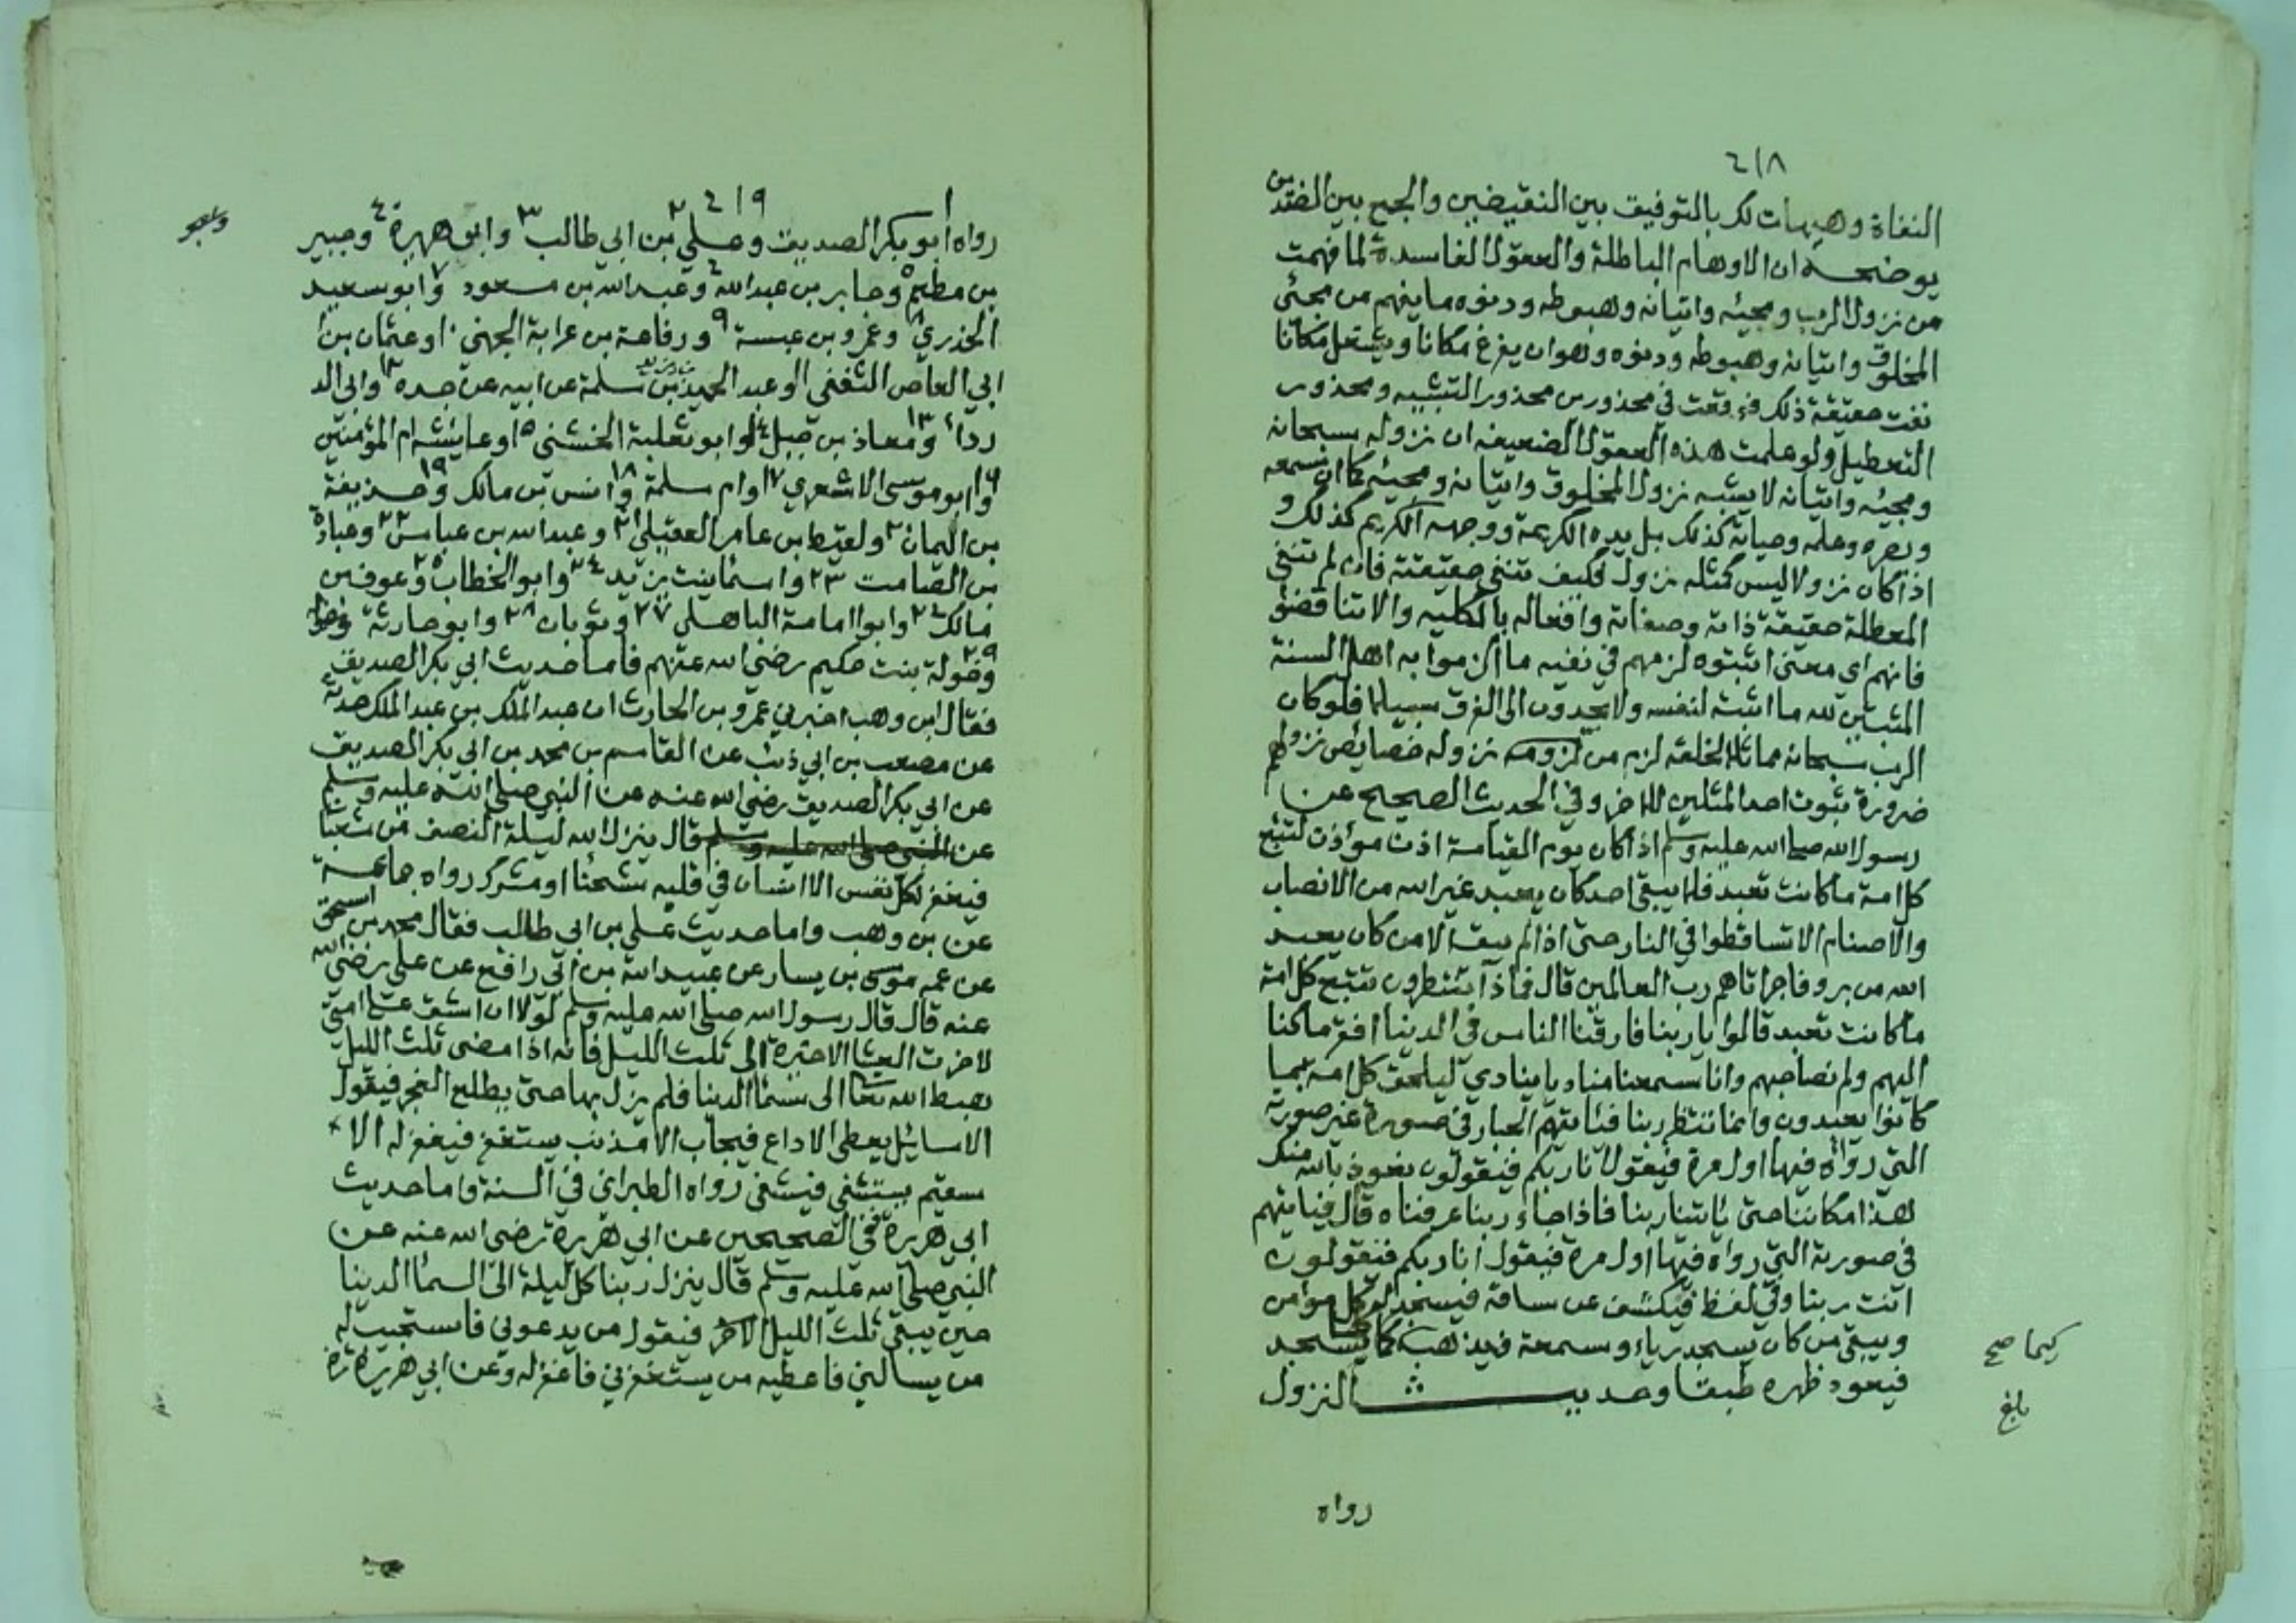 ٤١٨
النفاة وهيهات لكر بالتوفيق بين النقيضين والجمع بين الضدين
يوضحه ان الاوهام الباطلة والعقول الفاسدة لما فهمت
من نزول الرب ومجيئه واتيانه وهبوطه ودنوه ما يفهم من مجئ
المخلوق واتيانه وهبوطه ودنوه وهو ان يفرغ مكانا ويشغل مكانا
نفت حقيقة ذلك فوقعت في محذورين محذور التشبيه ومحذور
التعطيل ولو علمت هذه العقول الضعيفه ان نزوله سبحانه
ومجيئه واتيانه لا يشبه نزول المخلوق واتيانه ومجيئه كما ان سمعه
وبصره وعلمه وحياته كذلك بل يده الكريمة ووجهه الكريم كذلك و
اذا كان نزولا ليس كمثله نزول فكيف تنفي حقيقته فان لم تنفي
المعطلة حقيقة ذاته وصفاته وافعاله بالكليه والا تناقضوا
فانهم اي معنى اثبتوه لزمهم في نفيه ما الزموا به اهل السنة
المثبتين لله ما اثبت لنفسه ولا يجدون الى الفرق سبيلا فلو كان
الرب سبحانه مماثلا لخلقه لزم من لزومه نزوله خصائص نزولهم
ضرورة ثبوت احد المثلين للاخر وفي الحديث الصحيح عن
رسول الله صلى الله عليه وسلم اذا كان يوم القيامة اذن مؤذن لتتبع
كل امة ما كانت تعبد فلا يبقى احد كان يعبد غير الله من الانصاب
والاصنام الا تساقطوا في النار حتى اذا لم يبق الا من كان يعبد
الله من بر وفاجر اتاهم رب العالمين قال فماذا تنتظرون تتبع كل امة
ما كانت تعبد قالوا يا ربنا فارقنا الناس في الدينا افقر ما كنا
اليهم ولم نصاحبهم وانا سمعنا مناديا ينادي ليلحق كل امة بما
كانوا يعبدون وانما ننتظر ربنا فيأتيهم الجبار في صورة غير صورته
التي رواه فيها اول مرة فيقول انا ربكم فيقولون نعوذ بالله منك
هذا مكاننا حتى ياتينا ربنا فاذا جاء ربنا عرفناه قال فياتيهم
في صورته التي رواه فيها اول مرة فيقول انا ربكم فيقولون
انت ربنا وفي لفظ فيكشف عن ساقه فيسجد له كل مؤمن
ويبقى من كان يسجد رياء وسمعة فيذهب كما يسجد
كيما صح
فيعود ظهره طبقا وحديث النزول
بلغ
رواه
٤١٩
رواه ابو بكر الصديق وعلي بن ابي طالب ٣ وابو هريرة ٤ وجبير
بن مطعم ٥ وجابر بن عبد الله ٦ وعبد الله بن مسعود ٧ وابو سعيد
الخذري ٨ وعمرو بن عبسة ٩ ورفاعة بن عرابة الجهني ١٠ وعثمان بن
ابي العاص الثقفي ١١ وعبد الحميد بن سلمة عن ابيه عن جده ١٢ وابي الد
رداء ١٣ ومعاذ بن جبل ١٤ وابو ثعلبة الخشني ١٥ وعايشه ام المؤمنين
١٦ وابو موسى الاشعري ١٧ وام سلمة ١٨ وانس بن مالك ١٩ وحذيفة
بن اليمان ٢٠ ولقيط بن عامر العقيلي ٢١ وعبد الله بن عباس ٢٢ وعبادة
بن الصامت ٢٣ واسما بنت يزيد ٢٤ وابو الخطاب ٢٥ وعوف بن
مالك ٢٦ وابو امامة الباهلي ٢٧ وثوبان ٢٨ وابو حارثة
٢٩ وخولة بنت حكيم رضي الله عنهم فاما حديث ابي بكر الصديق
فقال ابن وهب اخبرني عمرو بن الحارث ان عبد الملك بن عبد الملك حدثه
عن مصعب بن ابي ذئب عن القاسم بن محمد بن ابي بكر الصديق
عن ابي بكر الصديق رضي الله عنه عن النبي صلى الله عليه وسلم
عن النبي صلى الله عليه وسلم قال ينزل الله ليلة النصف من شعبان
فيغفر لكل نفس الا انسان في قلبه شحنا او مشرك رواه جماعة
عن بن وهب واما حديث علي بن ابي طالب فقال محمد بن اسحق
عن عمه موسى بن يسار عن عبيد الله بن ابي رافع عن علي رضي الله
عنه قال قال رسول الله صلى الله عليه وسلم لولا ان اشق على امتي
لاخرت العشا الاخيرة الى ثلث الليل فانه اذا مضى ثلث الليل
هبط الله تعا الى سما الدينا فلم يزل بها حتى يطلع الفجر فيقول
الا سائل يعطى الا داع فيجاب الا مذنب يستغفر فيغفر له الا
سقيم يستشفي فيشفى رواه الطبراني في السنة واما حديث
ابي هريرة ففي الصحيحين عن ابي هريرة رضى الله عنه عن
النبي صلى الله عليه وسلم قال ينزل ربنا كل ليلة الى السما الدينا
حين يبقى ثلث الليل الاخر فيقول من يدعوني فاستجيب له
من يسالني فاعطيه من يستغفرني فاغفر له وعن ابي هريرة